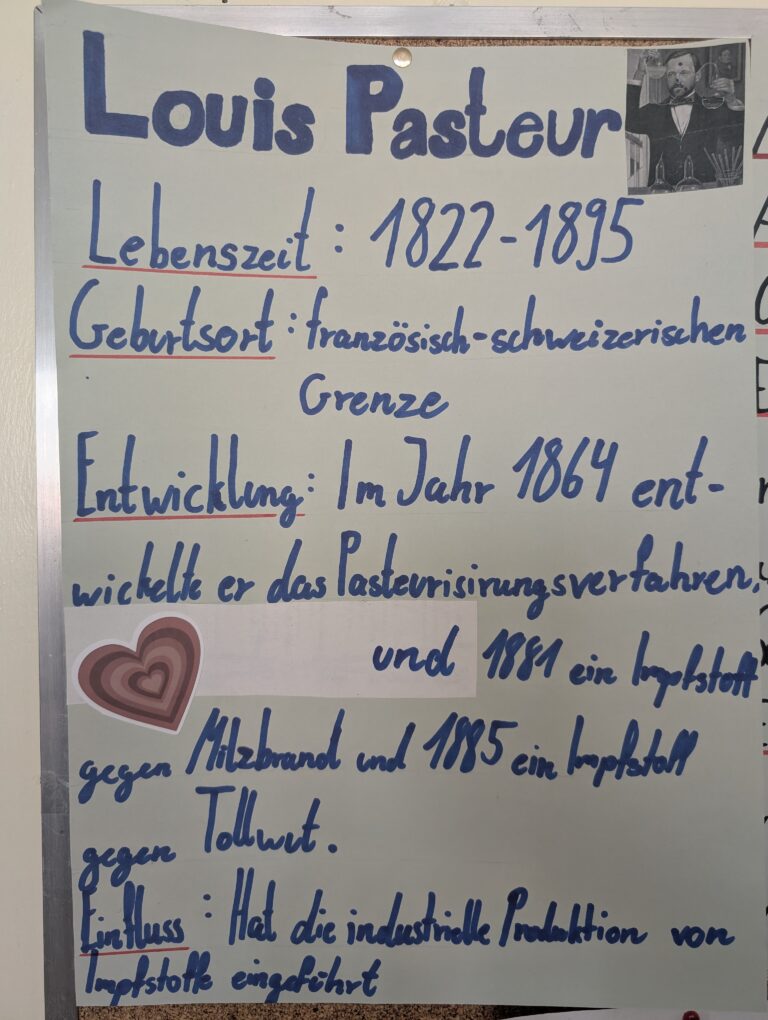 Louis Pasteur
Lebenszeit : 1822-1895
Geburtsort : französisch-schweizerischen
Grenze
Entwicklung: Im Jahr 1864 ent-
wickelte er das Pasteurisirungsverfahren.
und 1881 ein Impfstoff
gegen Milzbrand und 1885 ein Impfstoff
gegen Tollwut.
Einfluss : Hat die industrielle Produktion von
Impfstoffe eingeführt